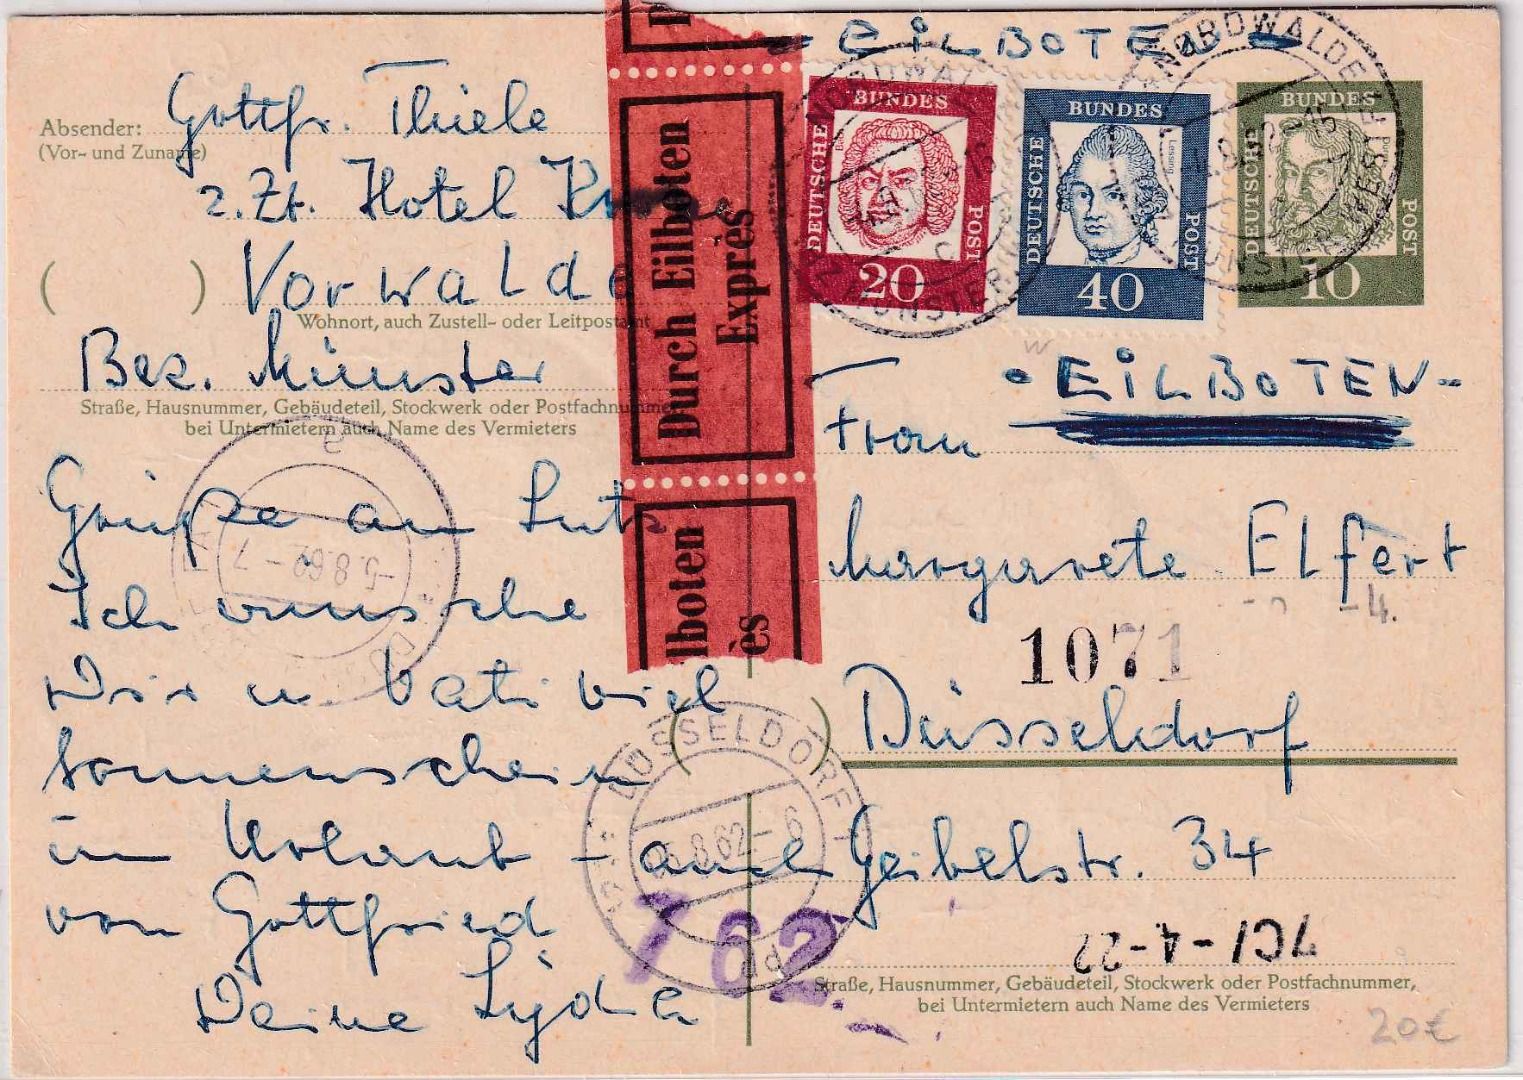 - EILBOTEN -
Absender:
(Vor- und Zuname)
Gottfr. Thiele
z. Zt. Hotel
Vorwalde
Wohnort, auch Zustell- oder Leitpostamt
Bez. Münster
Straße, Hausnummer, Gebäudeteil, Stockwerk oder Postfachnummer
bei Untermietern auch Name des Vermieters
Grüße an Lutz
Ich wünsche
Dir u. Vati viel
Sonnenschein
im Urlaub - auch
von Gottfried
Deine Lydia
Durch Eilboten
Exprès
lboten
ès
DEUTSCHE BUNDES POST
20
DEUTSCHE BUNDES POST
Lessing
40
DEUTSCHE BUNDES POST
10
NORDWALDE
MÜNSTER
NORDWALDE
MÜNSTER WESTF
- EILBOTEN -
Frau
Margarete Elfert
-4.
1071
Düsseldorf
Geibelstr. 34
Straße, Hausnummer, Gebäudeteil, Stockwerk oder Postfachnummer,
bei Untermietern auch Name des Vermieters
DÜSSELDORF
5.8.62-6
-5.8.62-7
162
20€